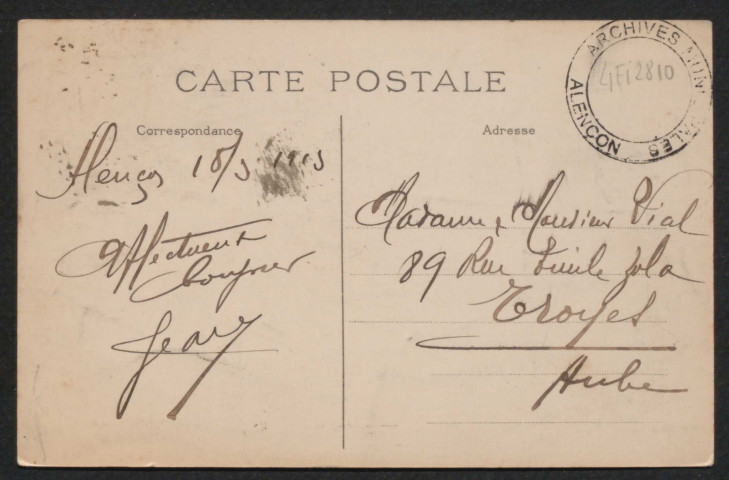 CARTE POSTALE
Correspondance
Adresse
ARCHIVES MUNICIPALES
ALENÇON
4Fi2810
Alençon 18/3 1913
Affectueux
bonjour
Jean
Madame, Monsieur Vial
89 Rue Emile Zola
Troyes
Aube